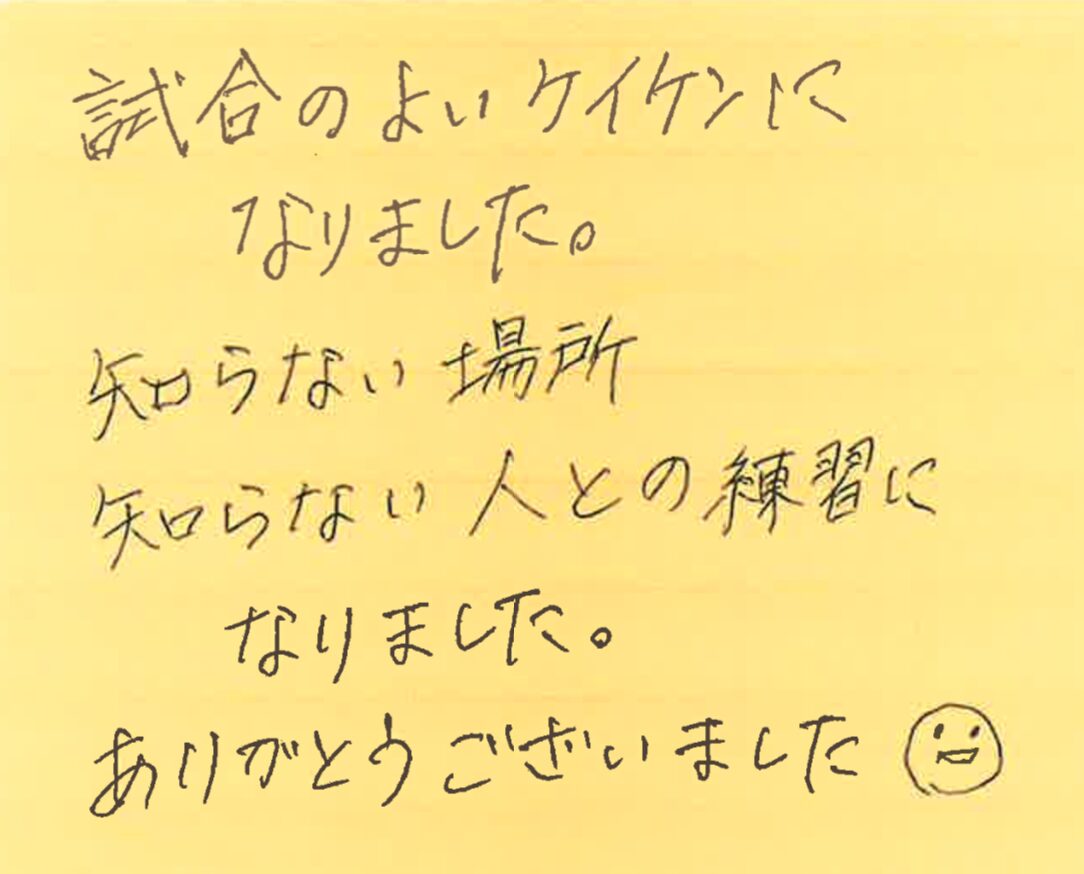 試合のよいケイケンに
なりました。
知らない場所
知らない人との練習に
なりました。
ありがとうございました